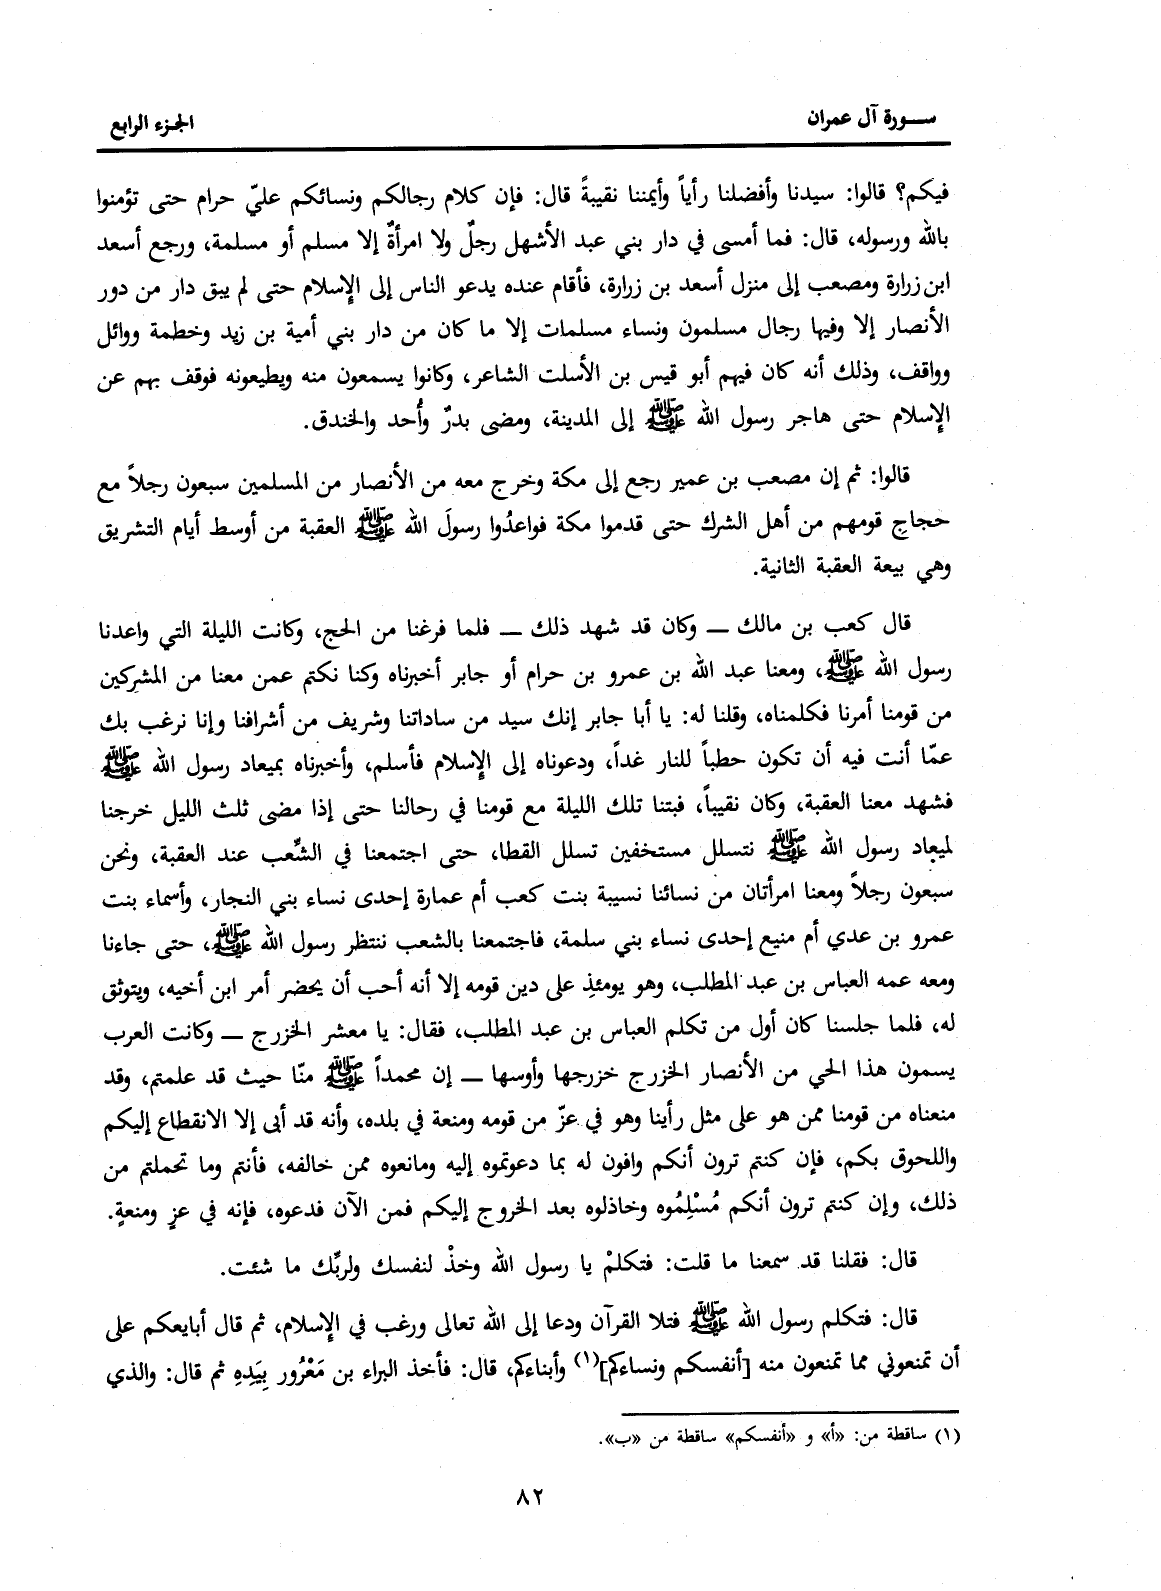 سـورة آل عمران
الجزء الرابع
فيكم؟ قالوا: سيدنا وأفضلنا رأياً وأيمننا نقيبةً قال: فإن كلام رجالكم ونسائكم عليّ حرام حتى تؤمنوا
بالله ورسوله، قال: فما أمسى في دار بني عبد الأشهل رجلٌ ولا امرأةٌ إلا مسلم أو مسلمة، ورجع أسعد
ابن زرارة ومصعب إلى منزل أسعد بن زرارة، فأقام عنده يدعو الناس إلى الإِسلام حتى لم يبق دار من دور
الأنصار إلا وفيها رجال مسلمون ونساء مسلمات إلا ما كان من دار بني أمية بن زيد وخطمة ووائل
وواقف، وذلك أنه كان فيهم أبو قيس بن الأسلت الشاعر، وكانوا يسمعون منه ويطيعونه فوقف بهم عن
الإِسلام حتى هاجر رسول الله ﷺ إلى المدينة، ومضى بدرٌ وأُحد والخندق.
قالوا: ثم إن مصعب بن عمير رجع إلى مكة وخرج معه من الأنصار من المسلمين سبعون رجلاً مع
حجاج قومهم من أهل الشرك حتى قدموا مكة فواعدُوا رسولَ الله ﷺ العقبة من أوسط أيام التشريق
وهي بيعة العقبة الثانية.
قال كعب بن مالك ـ وكان قد شهد ذلك ـ فلما فرغنا من الحج، وكانت الليلة التي واعدنا
رسول الله ﷺ، ومعنا عبد الله بن عمرو بن حرام أو جابر أخبرناه وكنا نكتم عمن معنا من المشركين
من قومنا أمرنا فكلمناه، وقلنا له: يا أبا جابر إنك سيد من ساداتنا وشريف من أشرافنا وإنا نرغب بك
عمّا أنت فيه أن تكون حطباً للنار غداً، ودعوناه إلى الإِسلام فأسلم، وأخبرناه بميعاد رسول الله ﷺ
فشهد معنا العقبة، وكان نقيباً، فبتنا تلك الليلة مع قومنا في رحالنا حتى إذا مضى ثلث الليل خرجنا
لميعاد رسول الله ﷺ نتسلل مستخفين تسلل القطا، حتى اجتمعنا في الشِّعب عند العقبة، ونحن
سبعون رجلاً ومعنا امرأتان من نسائنا نسيبة بنت كعب أم عمارة إحدى نساء بني النجار، وأسماء بنت
عمرو بن عدي أم منيع إحدى نساء بني سلمة، فاجتمعنا بالشعب ننتظر رسول الله ﷺ، حتى جاءنا
ومعه عمه العباس بن عبد المطلب، وهو يومئذِ على دين قومه إلا أنه أحب أن يحضر أمر ابن أخيه، ويتوثق
له، فلما جلسنا كان أول من تكلم العباس بن عبد المطلب، فقال: يا معشر الخزرج ـ وكانت العرب
يسمون هذا الحي من الأنصار الخزرج خزرجها وأوسها ـ إن محمداً ﷺ منّا حيث قد علمتم، وقد
منعناه من قومنا ممن هو على مثل رأينا وهو في عزّ من قومه ومنعة في بلده، وأنه قد أبى إلا الانقطاع إليكم
واللحوق بكم، فإن كنتم ترون أنكم وافون له بما دعوتموه إليه ومانعوه ممن خالفه، فأنتم وما تحملتم من
ذلك، وإن كنتم ترون أنكم مُسْلِمُوه وخاذلوه بعد الخروج إليكم فمن الآن فدعوه، فإنه في عزٍ ومنعةٍ.
قال: فقلنا قد سمعنا ما قلت: فتكلمْ يا رسول الله وخذْ لنفسك ولربِّك ما شئت.
قال: فتكلم رسول الله ﷺ فتلا القرآن ودعا إلى الله تعالى ورغب في الإِسلام، ثم قال أبايعكم على
أن تمنعوني مما تمنعون منه [أنفسكم ونساءكم](١) وأبناءكم، قال: فأخذ البراء بن مَعْرُور بِيَدِهِ ثم قال: والذي
(١) ساقطة من: «أ» و «أنفسكم» ساقطة من «ب».
٨٢